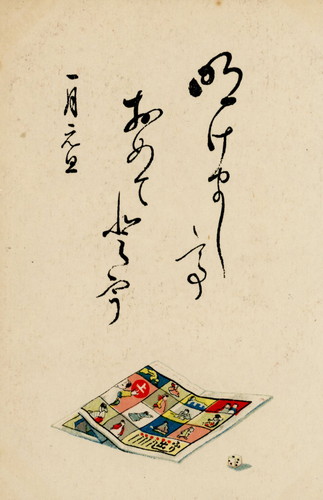 明けまして
おめてとう
一月元旦